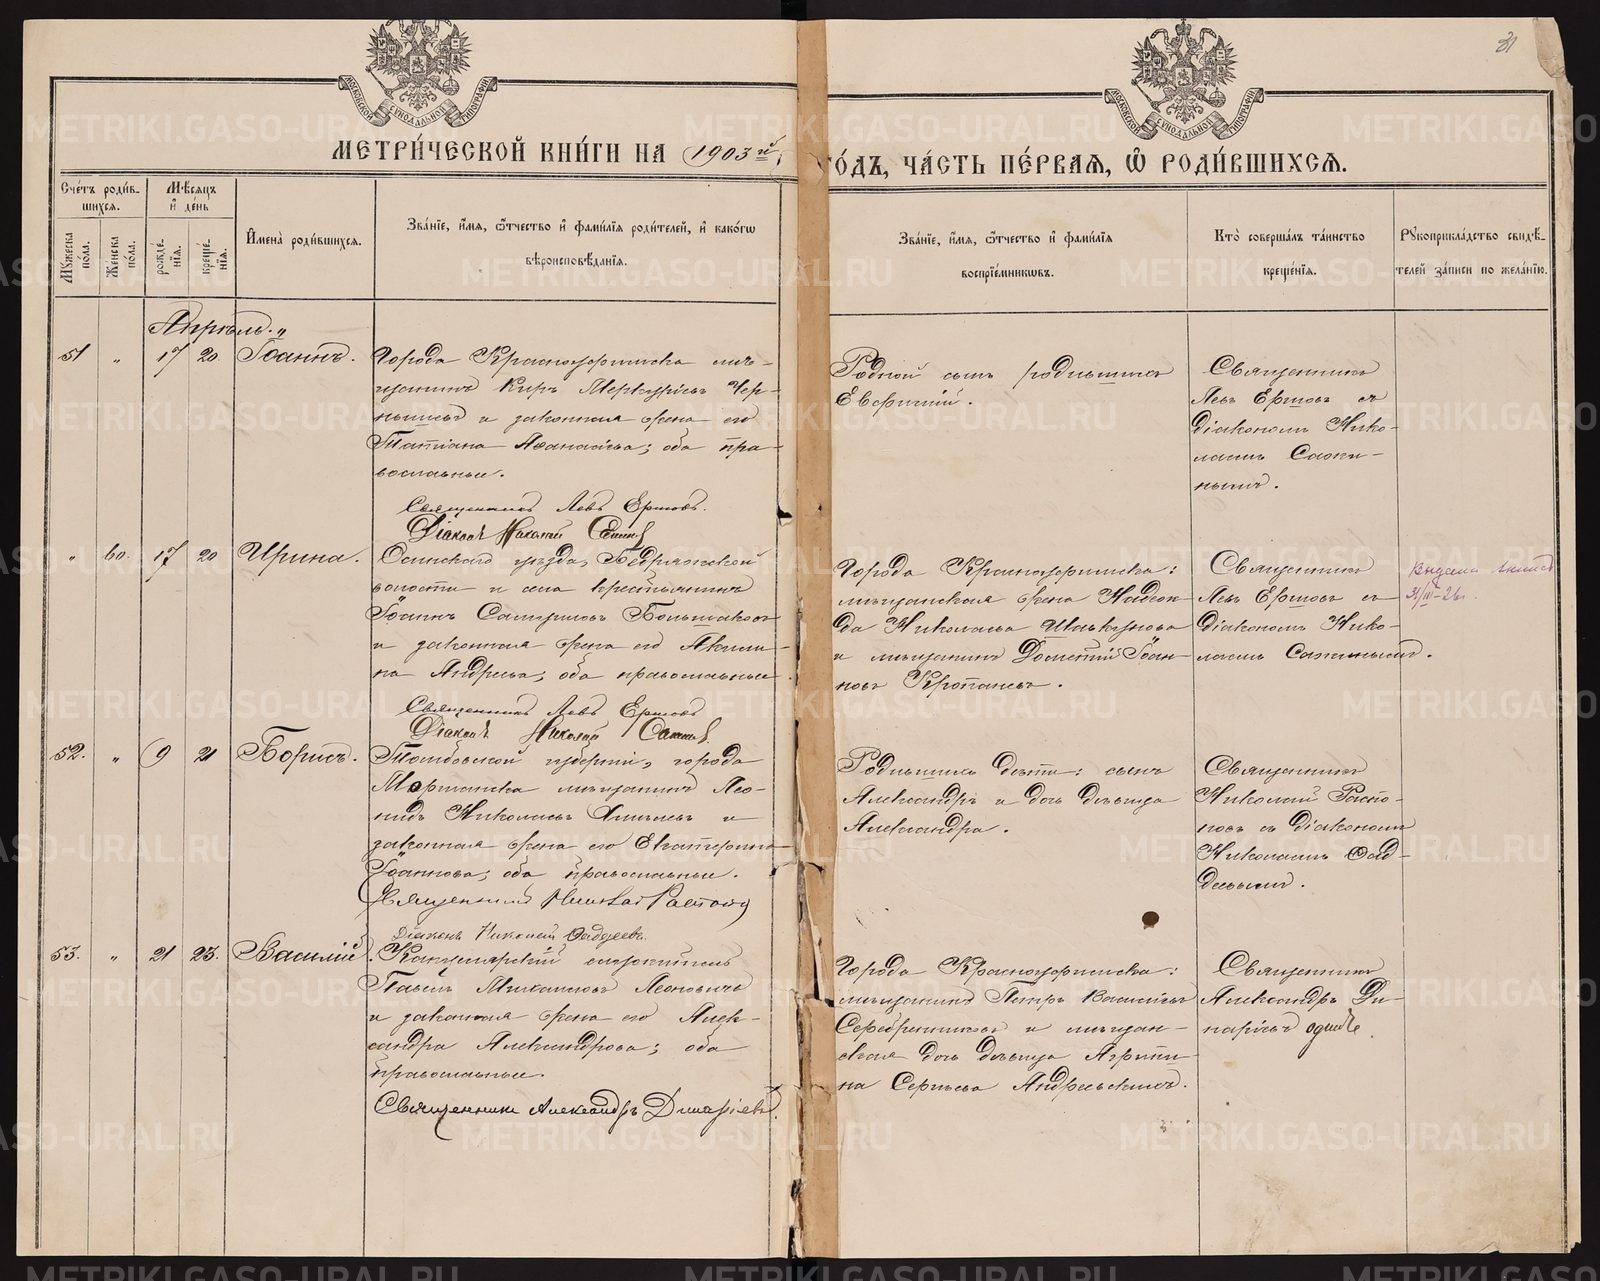 31
МОСКОВСКОЙ СѴНОДАЛЬНОЙ ТИПОГРАФІИ
МОСКОВСКОЙ СѴНОДАЛЬНОЙ ТИПОГРАФІИ
МЕТРИ́ЧЕСКОЙ КНИ́ГИ НА 1903й ГО́ДЪ, ЧА́СТЬ ПЕ́РВАѦ, Ѡ РОДИ́ВШИХСѦ.
Сче́тъ роди́вшихсѧ.
Мꙋ́жеска по́ла.
Же́нска по́ла.
Мѣ́сѧцъ и҆ де́нь
рожде́нїѧ.
креще́нїѧ.
И҆мена̀ роди́вшихсѧ.
Зва́нїе, и҆́мѧ, ѻ҆́тчество и҆ фами́лїѧ роди́телей, и҆ како́гѡ
вѣроисповѣ́данїѧ.
Зва́нїе, и҆́мѧ, ѻ҆́тчество и҆ фами́лїѧ
воспрїе́мникѡвъ.
Кто̀ соверша́лъ та́инство
креще́нїѧ.
Рꙋкоприкла́дство свидѣ́-
телей за́писи по жела́нїю.
Апрѣль.
51 " 17 20 Іоаннъ.
Города Красноуфимска мѣ-
щанинъ Киръ Меркурьевъ Чер-
нышевъ и законная жена его
Татіана Аѳанасьева; оба пра-
вославные.
Священникъ Левъ Ершовъ.
Діаконъ Николай
Родной сынъ родившихъ
Евфимій.
Священникъ
Левъ Ершовъ съ
діакономъ Нико-
лаемъ Сажи-
нымъ.
" 60. 17 20 Ирина.
Осинскаго уѣзда,
волости и села крестьянинъ
Іоаннъ Большаковъ
и законная жена его Акили-
на Андреева; оба православные
Священникъ Левъ Ершовъ
Діаконъ Николай
Города Красноуфимска:
мѣщанская жена Надеж-
да Николаева
и мѣщанинъ Дометій Іоан-
новъ
Священникъ
Левъ Ершовъ съ
діакономъ Нико-
лаемъ Сажинымъ.
Выдана
52. " 9 21 Борисъ.
Тамбовской губерніи, города
Моршанска мѣщанинъ Лео-
нидъ Николаевъ и
законная жена его Екатерина
Іоаннова; оба православные.
Священникъ Николай
Діаконъ Николай Ѳаддеевъ.
Родившихъ дѣти: сынъ
Александръ и дочь дѣвица
Александра.
Священникъ
Николай Распо-
повъ съ діакономъ
Николаемъ Ѳад-
деевымъ.
53. " 21 23. Василій.
Канцелярскій служитель
Павелъ Михаиловъ Леоновичъ
и законная жена его Алек-
сандра Александрова; оба
православные.
Священникъ Александръ Динаріевъ.
Города Красноуфимска:
мѣщанинъ Петръ Васильевъ
Серебренниковъ и мѣщан-
ская дочь дѣвица Агриппи-
на Сергѣева Андреевскихъ.
Священникъ
Александръ Ди-
наріевъ одинъ.
METRIKI.GASO-URAL.RU